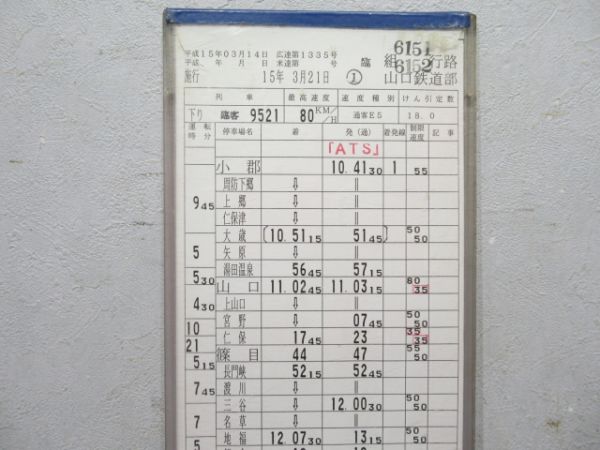 平成15年03月14日 広達第1335号
平成 年 月 日 米達第 号 臨 組 6151 行路
6152
施行 15年 3月21日 ① 山口鉄道部
列車 最高速度 速度種別 けん引定数
下り 臨客 9521 80 KM/H 通客E5 18.0
運転時分 停車場名 着 発(通) 着発線 制限速度 記事
「ATS」
小郡 10.41 30 1 55
周防下郷 ⇩ ||
9 45 上郷 ⇩ ||
仁保津 ⇩ ||
大歳 (10.51 15 51 45) 50 50
5 矢原 ⇩ ||
湯田温泉 56 45 57 15
5 30 山口 11.02 45 11.03 15 80 35
4 30 上山口 ⇩ ||
宮野 ⇩ 07 45 50 50
10 仁保 17 45 23 35 35
21 篠目 44 47 55 50
5 15 長門峡 52 15 52 45
7 45 渡川 ⇩ ||
三谷 ⇩ 12.00 30 50 50
7 名草 ⇩ ||
地福 12.07 30 13 15 50 50
5